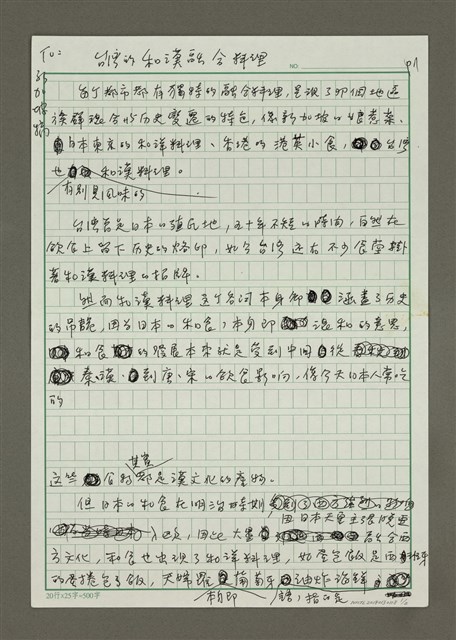 To:
台灣的和漢融合料理
NO.
P1
每个都市都有獨特的融合料理,呈現了那個地區
族群混合的历史變遷的特色,像新加坡的娘惹菜、
日本東京的和洋料理、香港的港英小食,台灣
也 和漢料理。
有別具風味的
台灣曾是日本的殖民地,五十年不短的時間,自然在
飲食上留下历史的烙印,如今台灣还有不少食堂掛
著和漢料理的招牌。
然而和漢料理这个名词本身卻 涵盖了历史
的吊詭,因为日本的和食,本身即 混和的意思,
和食 的發展本來就是受到中国 從
秦漢 到唐、宋的飲食影响,像今天日本人常吃
的
這些 食物都是漢文化的產物。
其實
但日本的和食在明治時期
因日本天皇主張
因此大量 西
方文化,和食也出現了和洋料理,如蛋包飯是西班牙
的 捲包了飯,天婦羅 葡萄牙 油炸海鮮
本即 語,指的是
20行×25字=500字